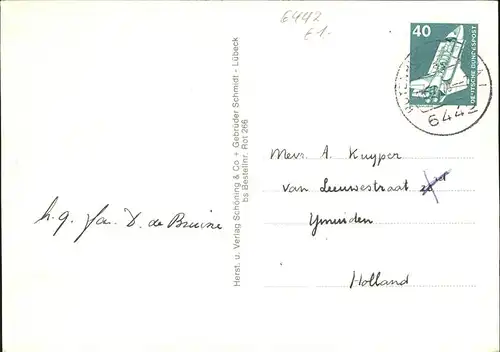 6442
E1-
40
DEUTSCHE BUNDESPOST
6442
Mevr. A. Kuyper
van Leeuwestraat
Ymuiden
Holland
h.g. fam. D. de Bruine
Herst. u. Verlag Schöning & Co + Gebrüder Schmidt - Lübeck
bs Bestellnr. Rot 266